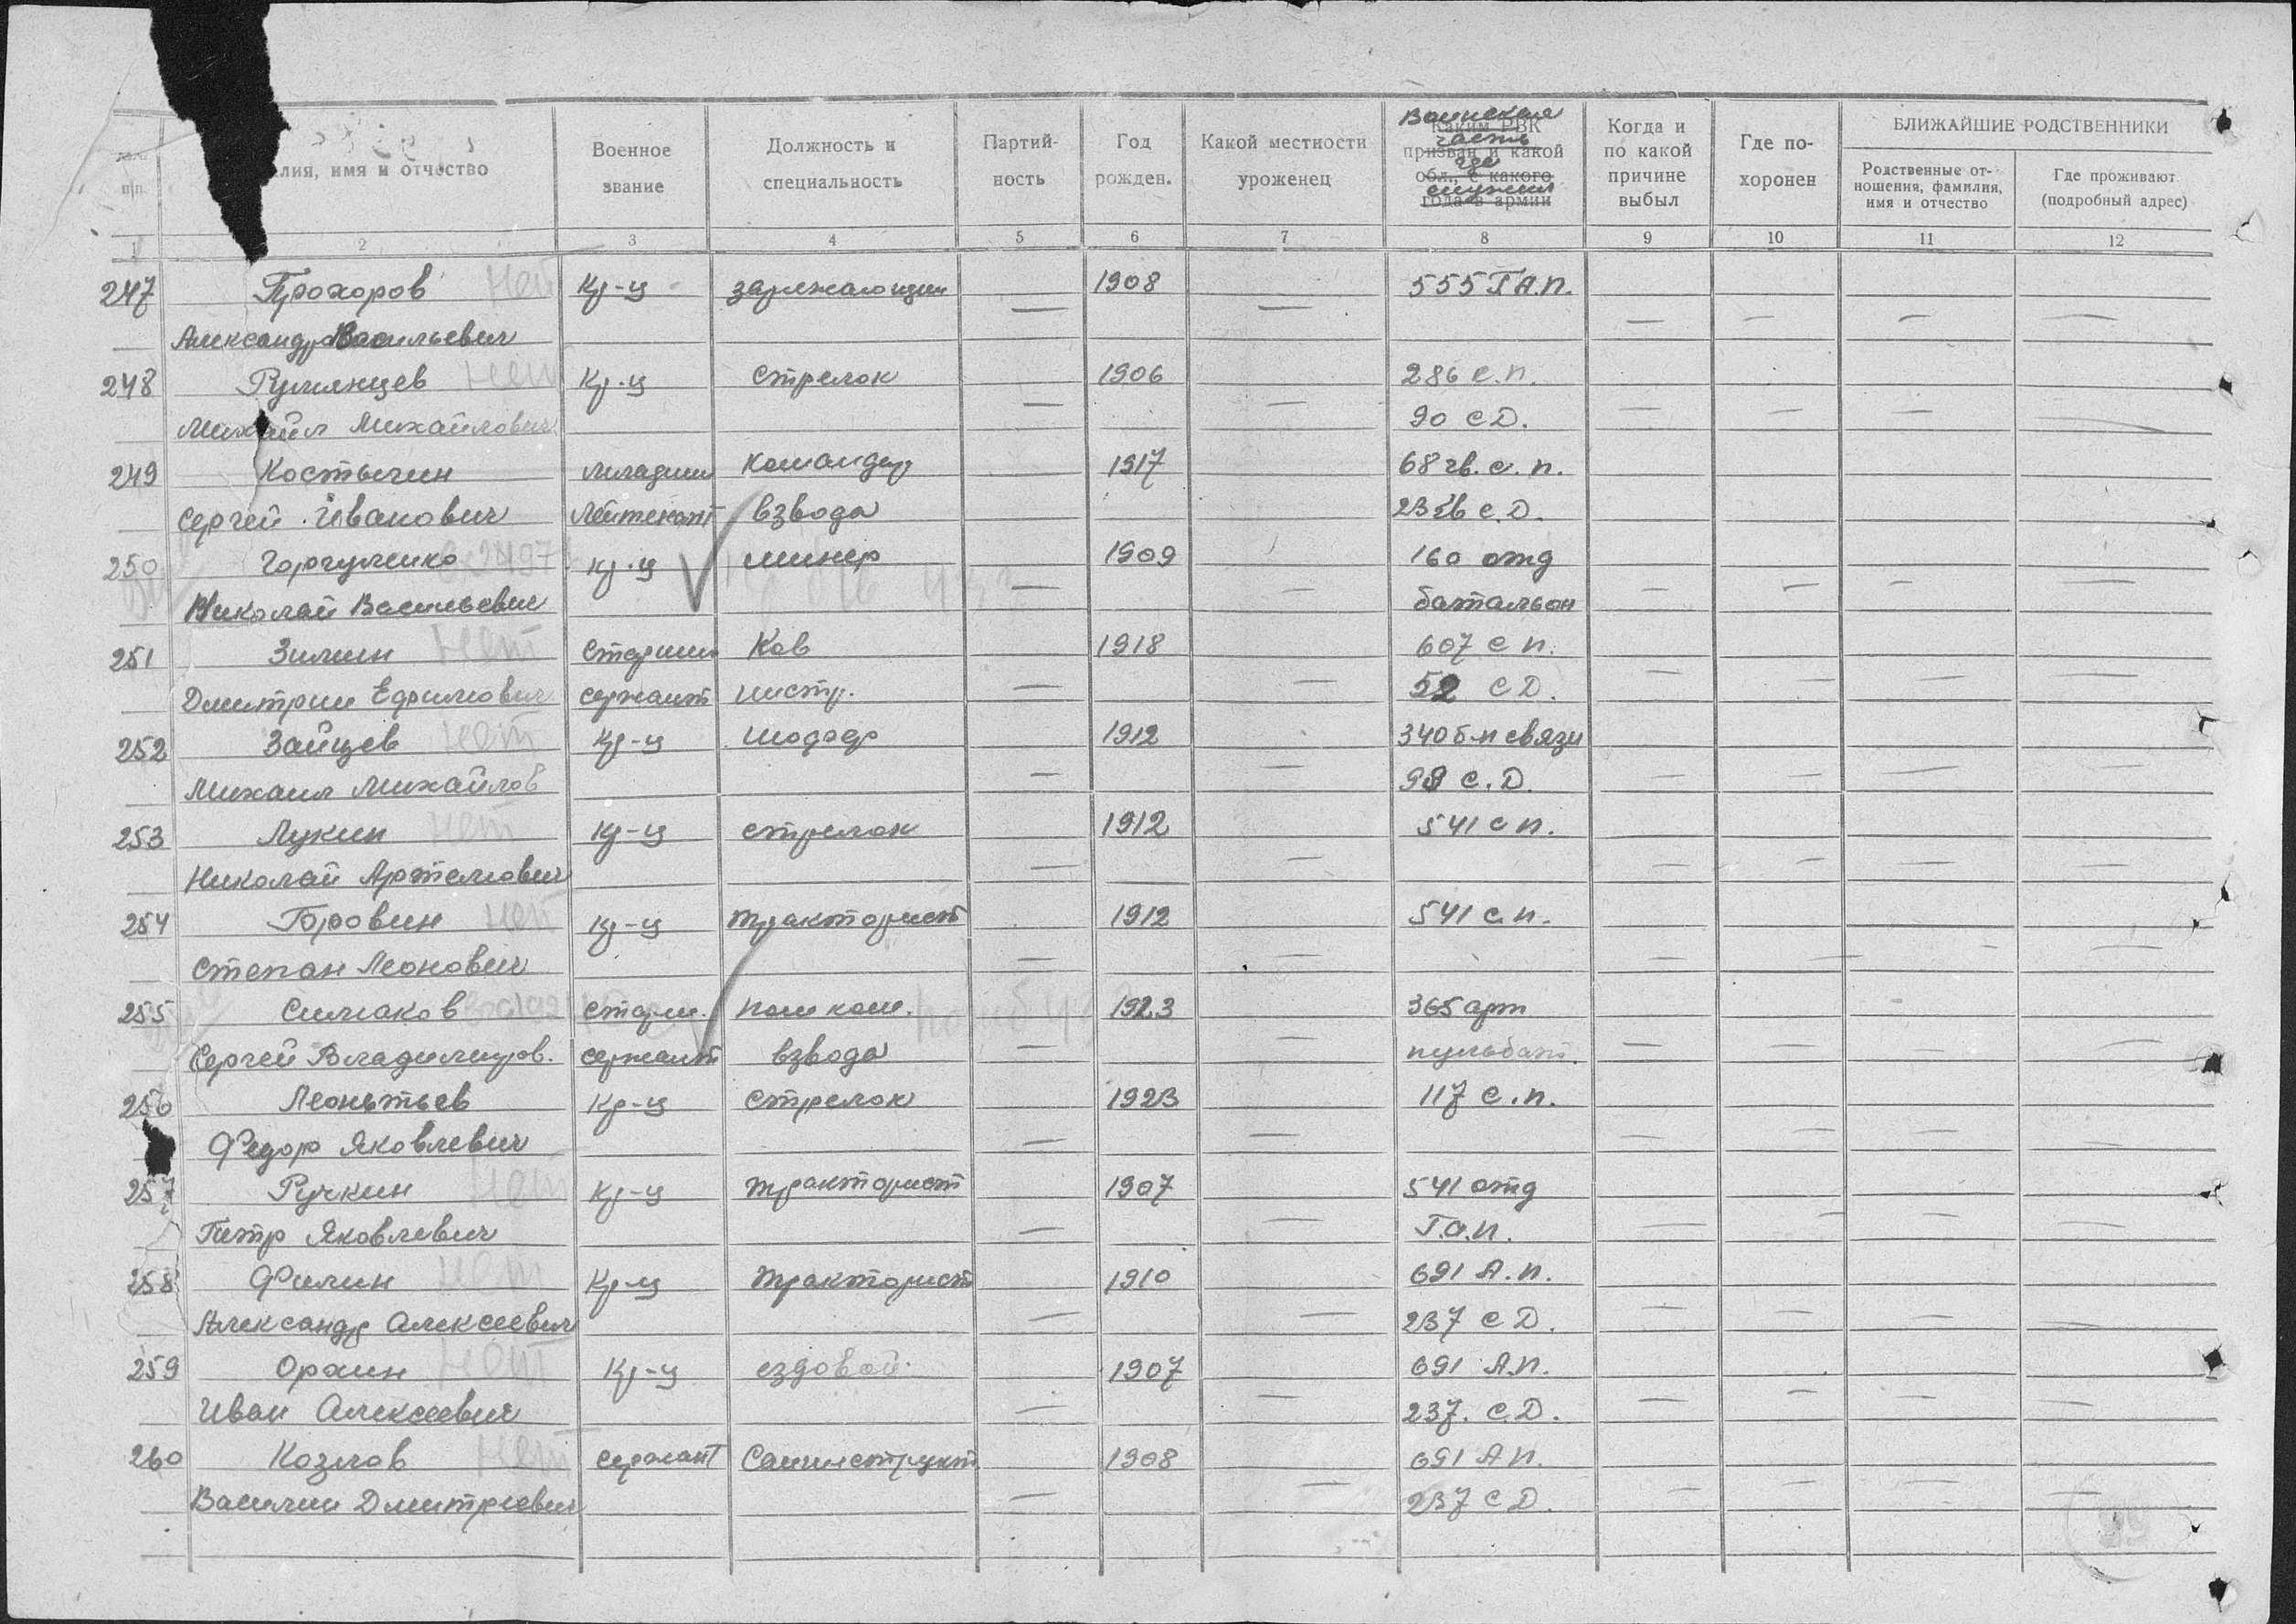 Воинская
часть
где
служил
№№
п/п
лия, имя и отчество
Военное
звание
Должность и
специальность
Партий-
ность
Год
рожден.
Какой местности
уроженец
Каким РВК
призван и какой
обл., с какого
года в армии
Когда и
по какой
причине
выбыл
Где по-
хоронен
БЛИЖАЙШИЕ РОДСТВЕННИКИ
Родственные от-
ношения, фамилия,
имя и отчество
Где проживают
(подробный адрес)
1 2 3 4 5 6 7 8 9 10 11 12
247 Прохоров нет Кр-ц заряжающий — 1908 — 555 Г А.п. — — — —
Александр Васильевич
248 Румянцев нет Кр-ц стрелок — 1906 — 286 с.п. — — — —
Михаил Михайлович 90 с Д.
249 Костычин младший командир 1917 68 гв. с. п.
Сергей Иванович Лейтенант взвода 23 гв с. Д.
250 Горчуленко Кр-ц минер — 1909 — 160 отд — — — —
Николай Васильевич батальон
251 Зимин нет Старший Ков — 1918 — 607 с п. — — — —
Дмитрий Ефимович сержант инстр. 52 с Д.
252 Зайцев нет Кр-ц шофер — 1912 — 340 б-н связи — — — —
Михаил Михайлов 98 с. Д.
253 Лукин нет Кр-ц стрелок — 1912 — 541 с п. — — — —
Николай Артемович
254 Горовин нет Кр-ц тракторист — 1912 — 541 с.п. — — — —
Степан Леонович
255 Симаков старш. пом ком. — 1923 — 365 арт — — — —
Сергей Владимиров. сержант взвода пульбат.
256 Леонтьев Кр-ц стрелок — 1923 — 117 с.п. — — — —
Федор Яковлевич
257 Ручкин нет Кр-ц тракторист — 1907 — 541 отд — — — —
Петр Яковлевич Г.а.п.
258 Филин нет Кр-ц тракторист — 1910 — 691 А.п. — — — —
Александр Алексеевич 237 с Д.
259 Ораин нет Кр-ц ездовой — 1907 — 691 А.п. — — — —
Иван Алексеевич 237. с.Д.
260 Козлов нет сержант Санинструкт. — 1908 — 691 А п. — — — —
Василий Дмитриевич 237 с Д.
99